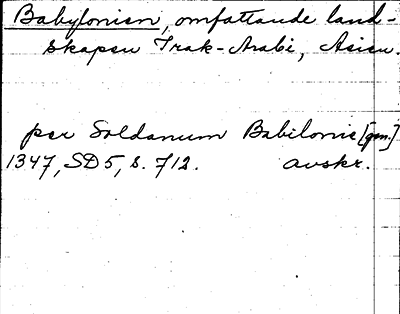 Babylonien, omfattande land-
skapen Irak-Arabi, Asien.
per Soldanum Babilonie [gen.]
1347, SD 5, s. 712. avskr.